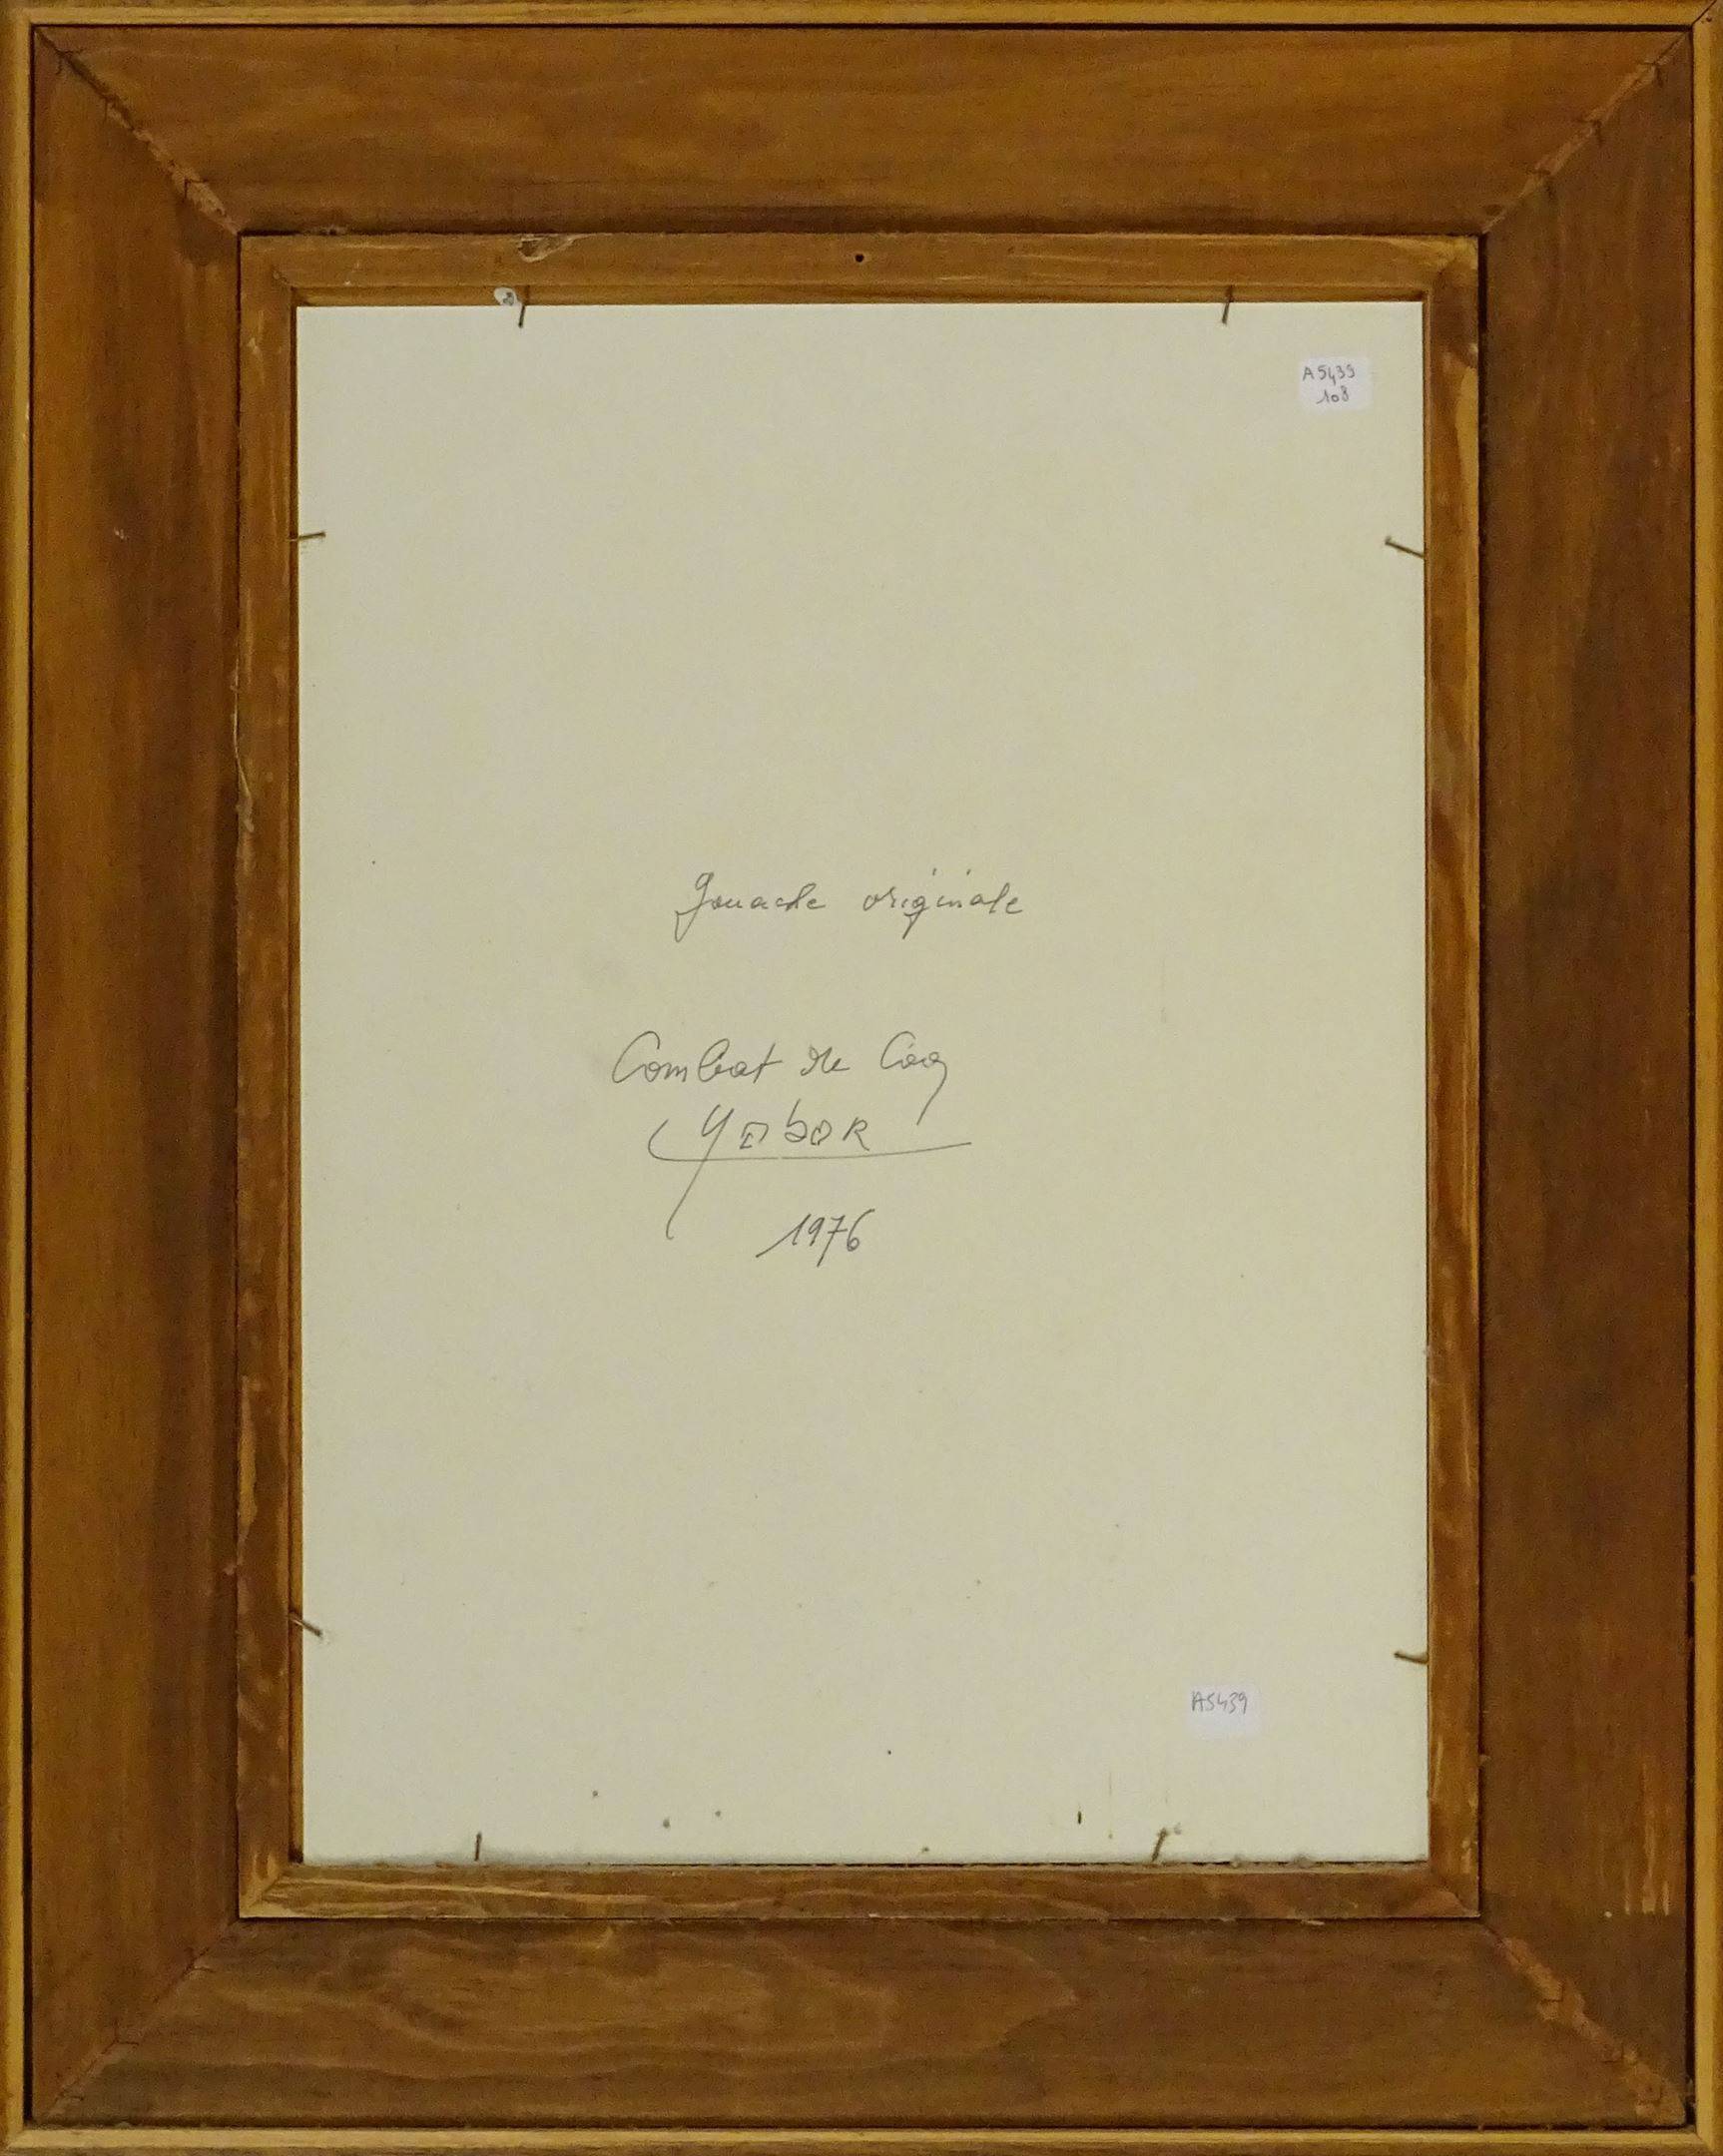 A5439
108
Gouache originale
Combat de Coq
YOBOR
1976
A5439